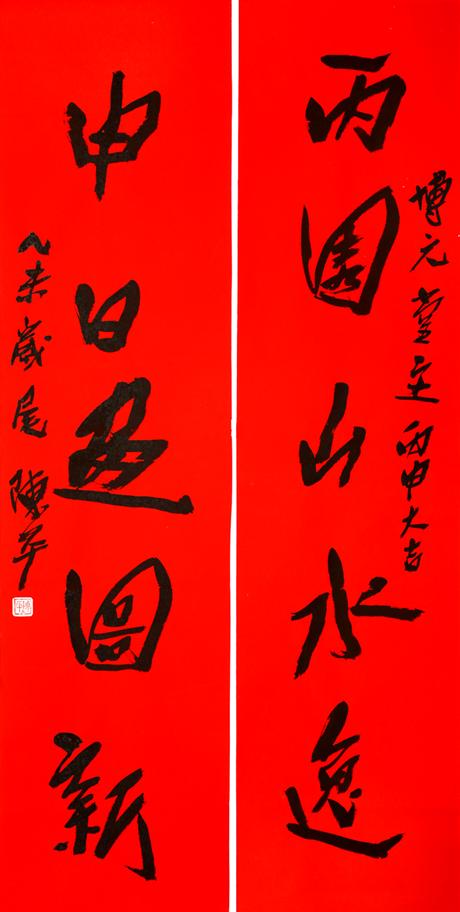 丙園山水逸
博元堂主丙申大吉
申日畫圖新
乙未歲尾陳平